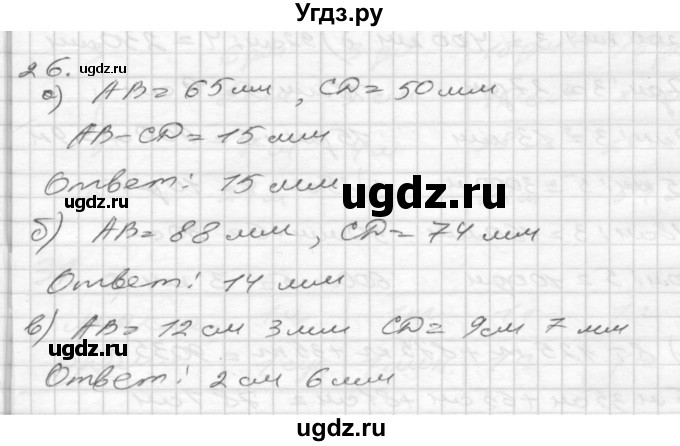 Угдз.ру
26.
ugdz.ru
а) AB = 65 мм, CD = 50 мм
AB - CD = 15 мм
Ответ: 15 мм
ugdz.ru
ugdz.ru
б) AB = 88 мм, CD = 74 мм
Ответ: 14 мм
в) AB = 12 см 3 мм CD = 9 см 7 мм
ugdz.ru
ugdz.ru
Ответ: 2 см 6 мм
Угдз.ру